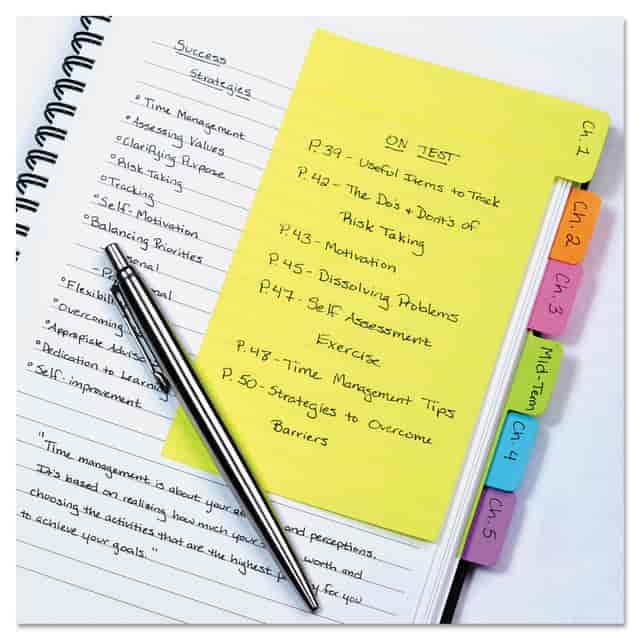 Success
Strategies
° Time Management
° Assessing Values
° Clarifying Purpose
° Risk Taking
° Tracking
° Self-Motivation
° Balancing Priorities
onal
- P nal
° Flexibil
° Overcoming
° Appropiate Advise
° Dedication to Learning
° Self-improvement
"Time management is about your and perceptions.
It's based on realizing how much your worth and
choosing the activities that are the highest p y for you
to achieve your goals."
ON TEST
P.39 - Useful Items to Track
P.42 - The Do's + Dont's of
Risk Taking
P.43 - Motivation
P.45 - Dissolving Problems
P.47 - Self Assessment
Exercise
P.48 - Time Management Tips
P.50 - Strategies to Overcome
Barriers
Ch. 1
Ch. 2
Ch. 3
Mid-Term
Ch. 4
Ch. 5